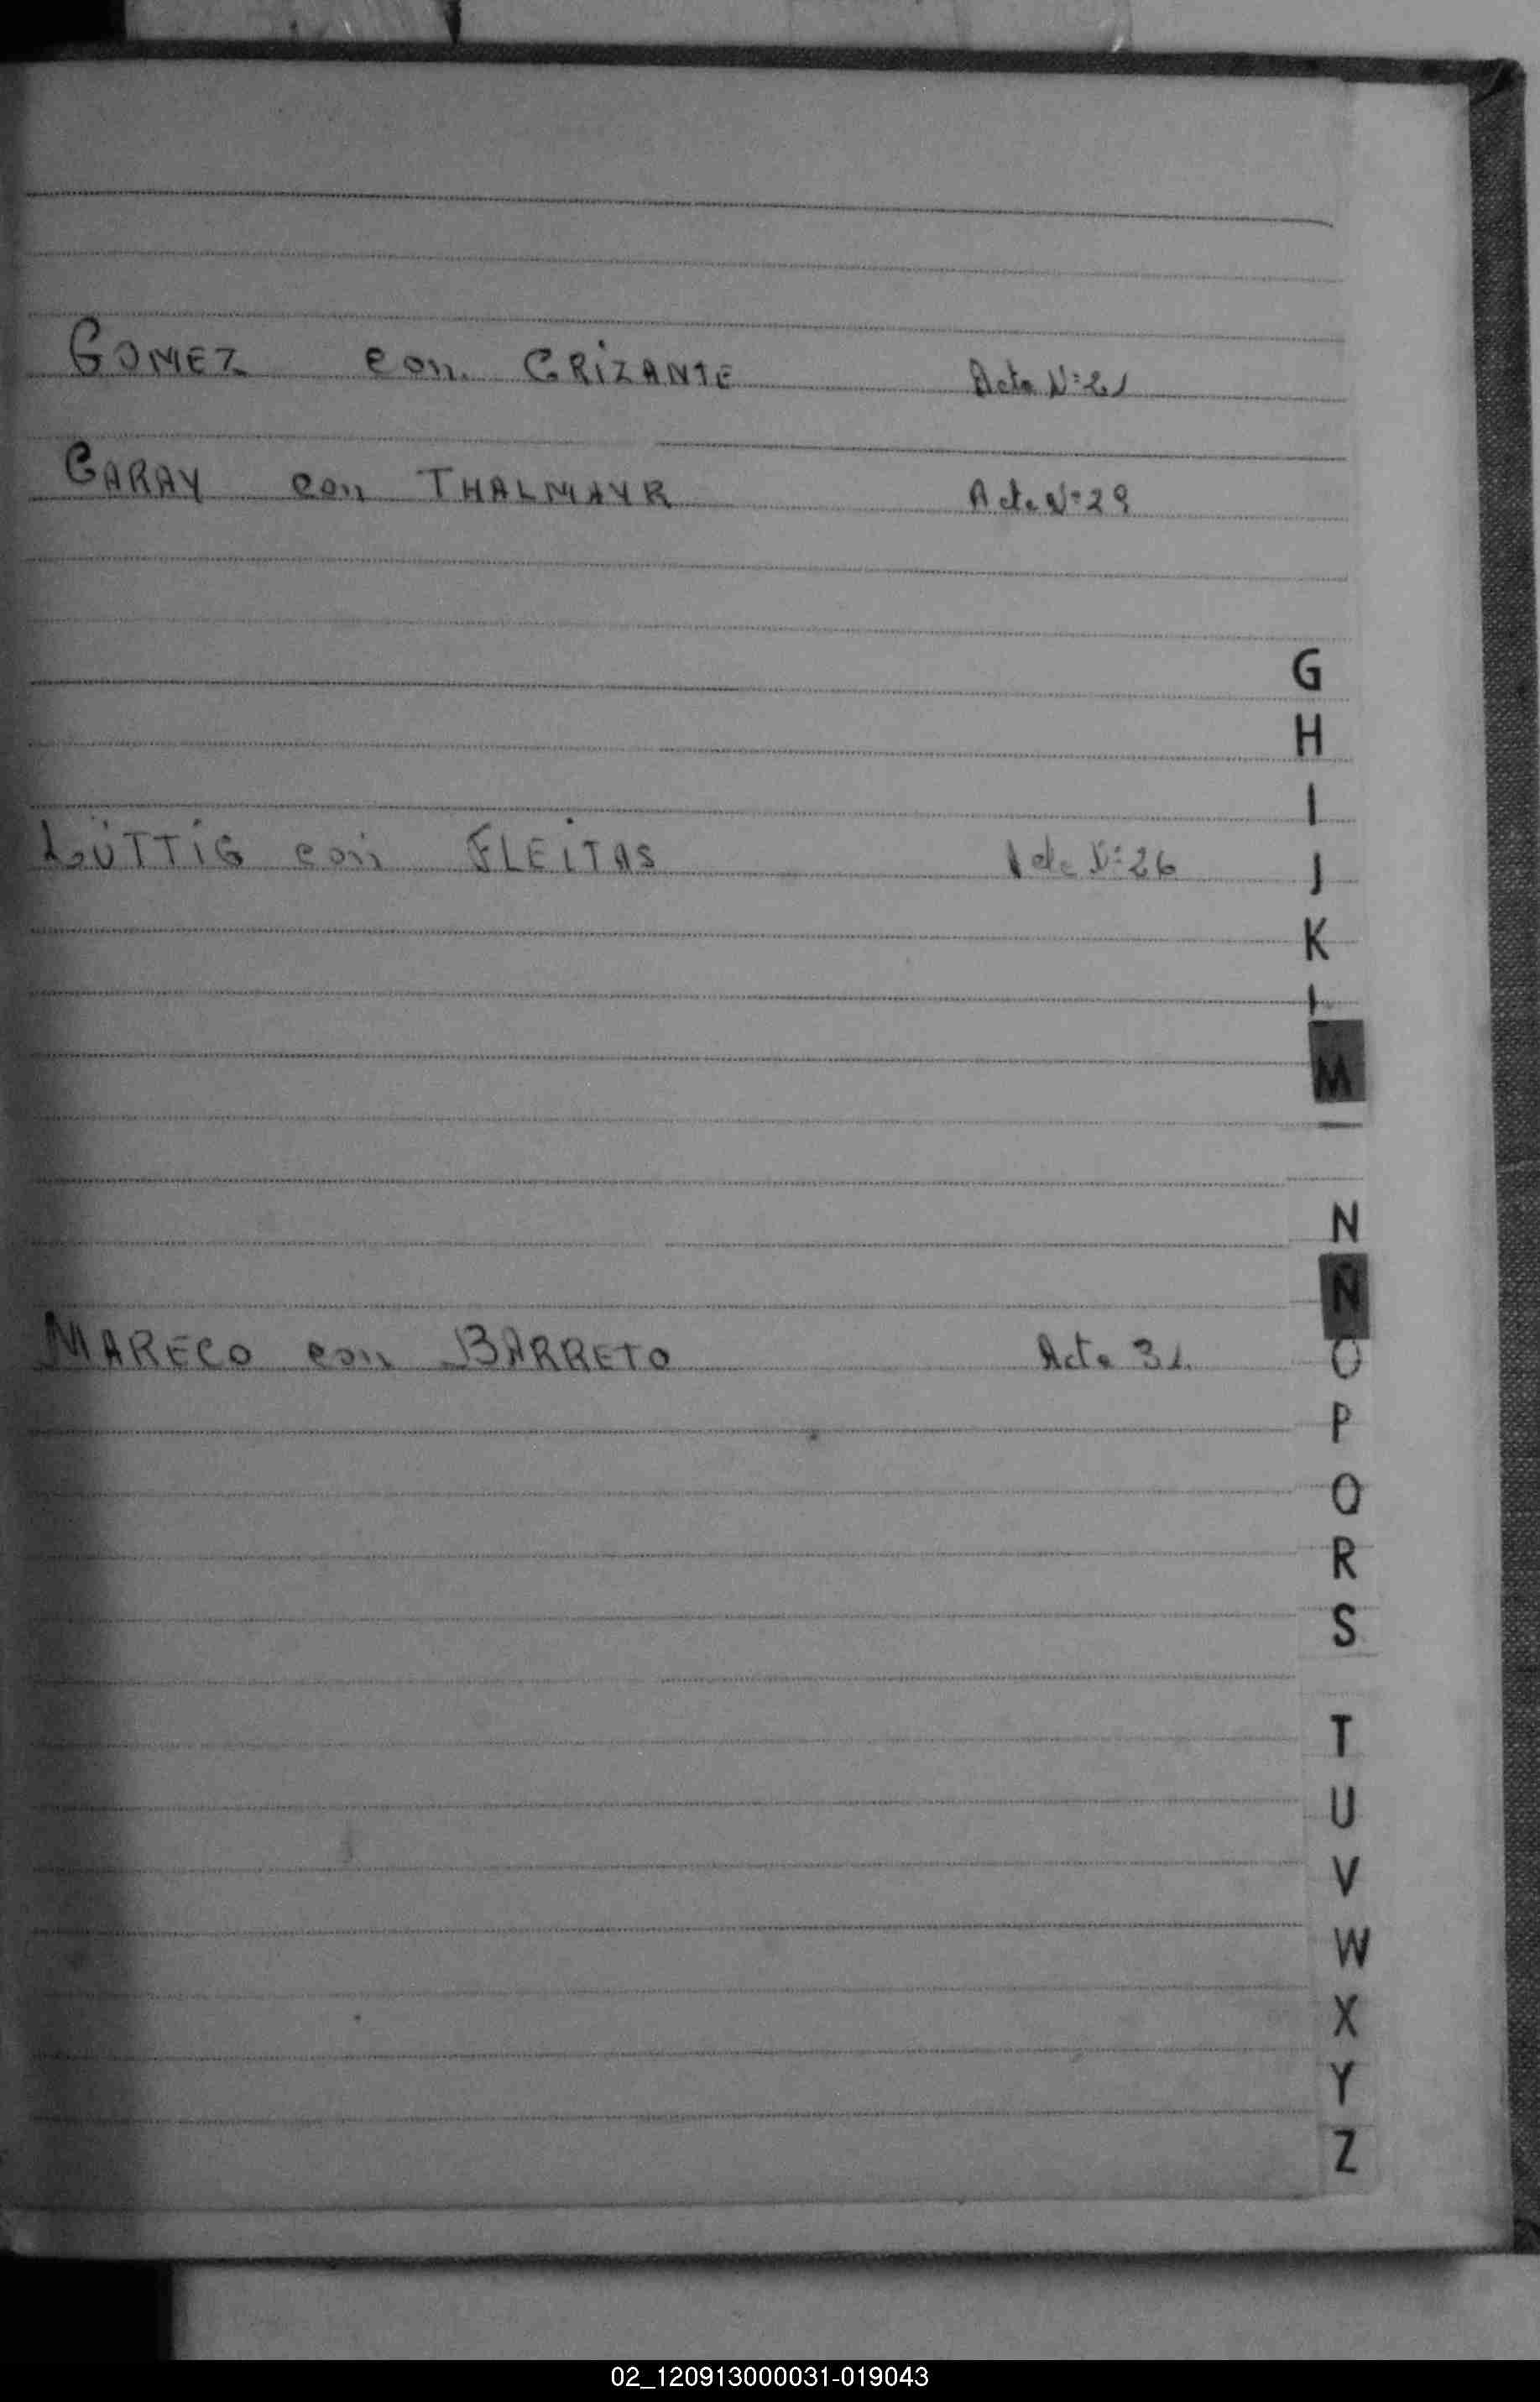 GOMEZ con CRIZANTE Acta Nº 21
GARAY con THALMAYR Acta Nº 29
G
H
I
LÜTTIG con FLEITAS Acta Nº 26
J
K
L
M
N
Ñ
MARECO con BARRETO Acta 31
O
P
Q
R
S
T
U
V
W
X
Y
Z
02_120913000031-019043